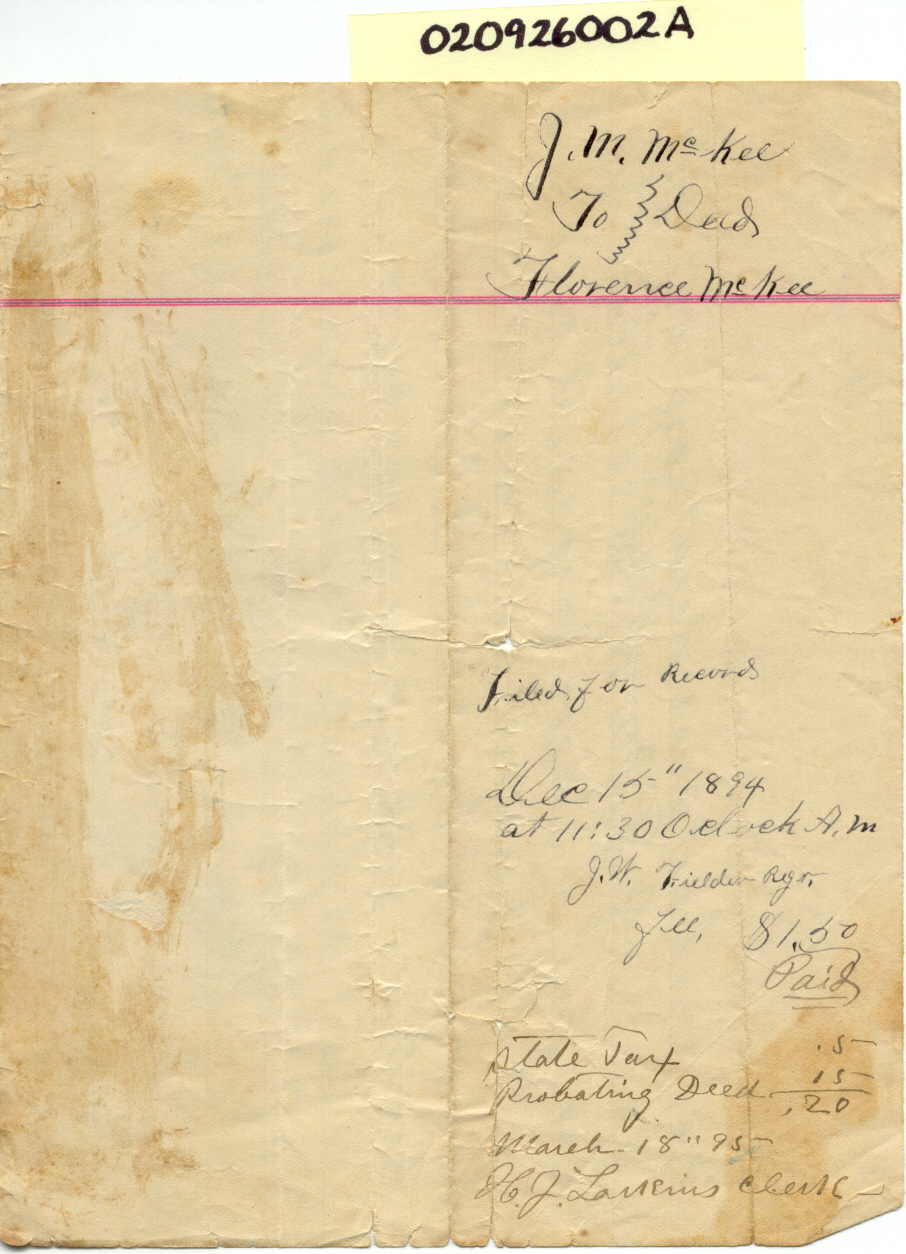 020926002A
J. M. McKee
To Deed
Florence McKee
Filed for Record
Dec 15" 1894
at 11:30 O clock A.m
J. W. Fielder Regr.
Fee, $1.50
Paid
State Tax .5
Probating Deed 15
.20
March 18" 95
H. J. Larkins Clerk